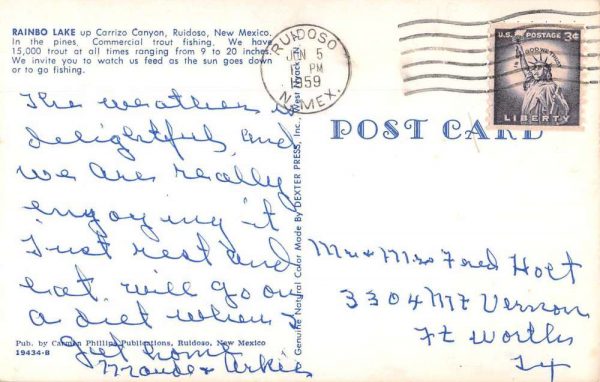 RAINBO LAKE up Carrizo Canyon, Ruidoso, New Mexico.
In the pines. Commercial trout fishing. We have
15,000 trout at all times ranging from 9 to 20 inches.
We invite you to watch us feed as the sun goes down
or to go fishing.
RUIDOSO
5
PM
1959
N. MEX.
U.S. POSTAGE 3¢
IN GOD WE TRUST
LIBERTY
POST CARD
The weather is
delightful and
we are really
enjoying it
Just rest and
eat will go on
a diet when I
get home
Maude & Arkie
Genuine Natural Color Made By DEXTER PRESS, Inc., West Nyack, N.
Mr & Mrs Fred Holt
3304 Mt Vernon
Ft Worth
Tx
Pub. by Carmen Phillips Publications, Ruidoso, New Mexico
19434-B